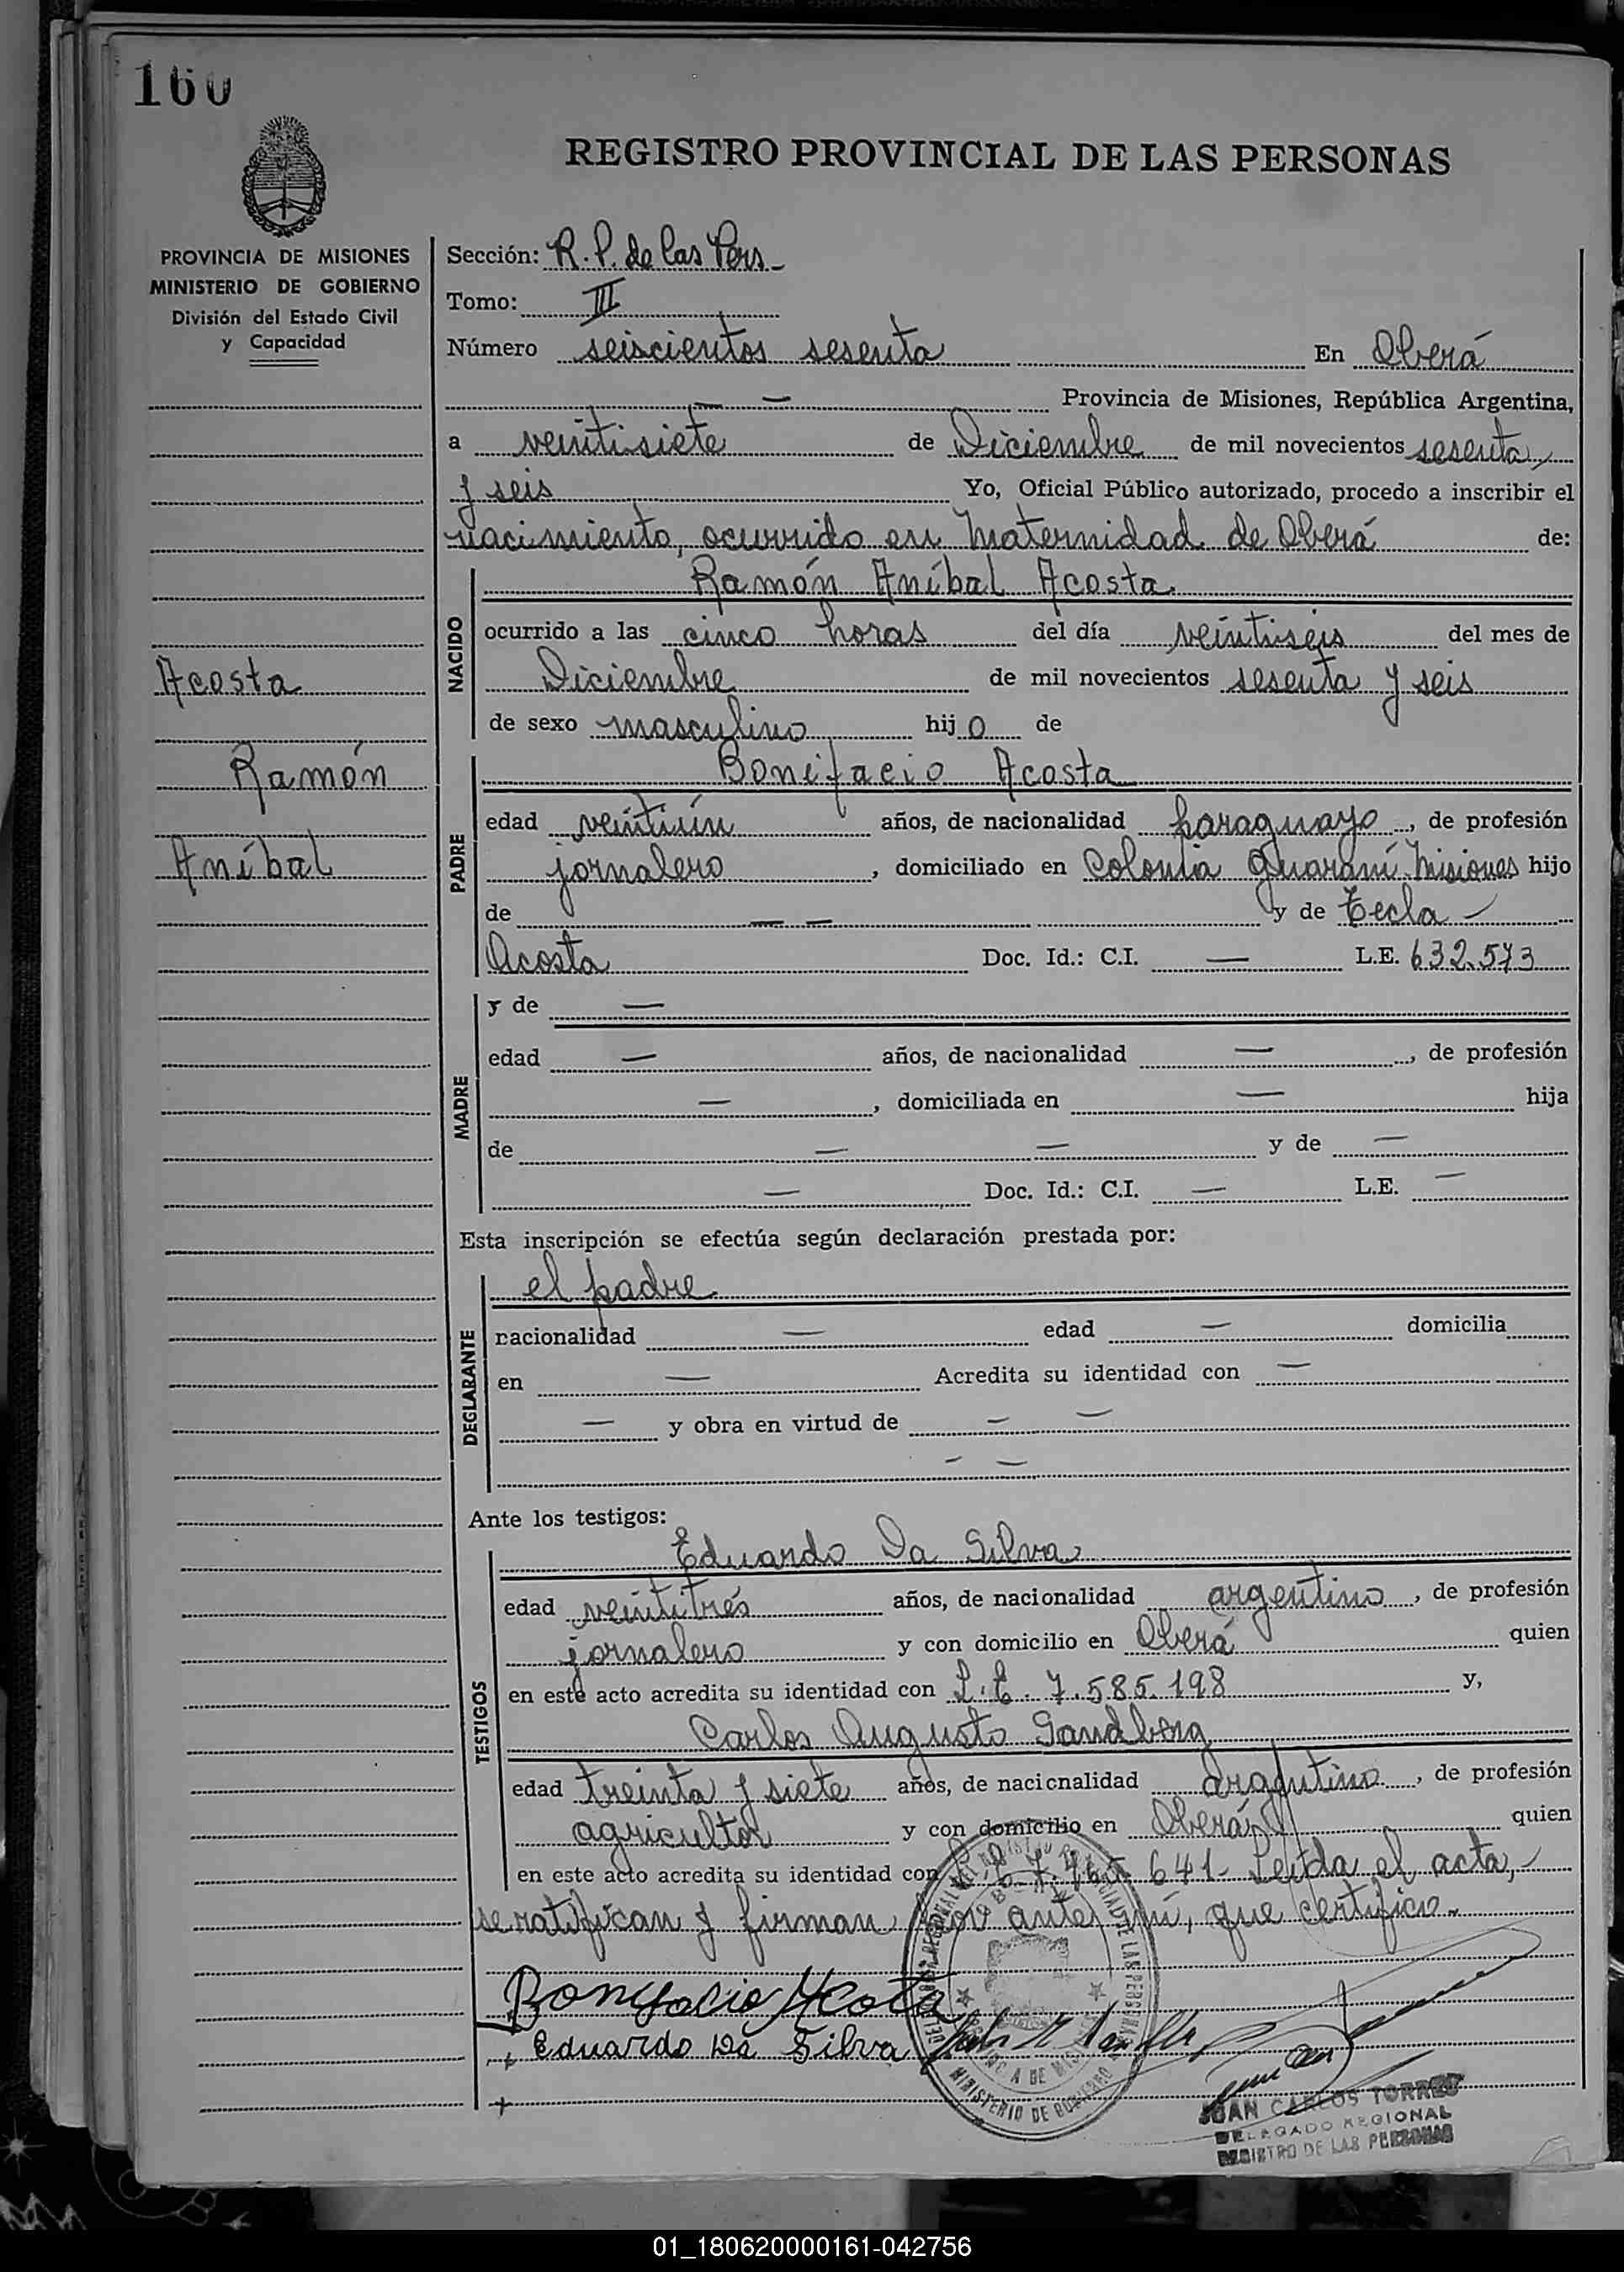 160
REGISTRO PROVINCIAL DE LAS PERSONAS
PROVINCIA DE MISIONES
MINISTERIO DE GOBIERNO
División del Estado Civil
y Capacidad
Acosta
Ramón
Aníbal
Sección: R. P. de las Pers-
Tomo: III
Número seiscientos sesenta En Oberá
— — Provincia de Misiones, República Argentina,
a veintisiete de Diciembre de mil novecientos sesenta
y seis Yo, Oficial Público autorizado, procedo a inscribir el
nacimiento, ocurrido en Maternidad de Oberá de:
NACIDO
Ramón Aníbal Acosta
ocurrido a las cinco horas del día veintiseis del mes de
Diciembre de mil novecientos sesenta y seis
de sexo masculino hijo de
PADRE
Bonifacio Acosta
edad veintiún años, de nacionalidad paraguayo, de profesión
jornalero, domiciliado en Colonia Guaraní Misiones hijo
de — — y de Tecla -
Acosta Doc. Id.: C.I. — L.E. 632.573
MADRE
y de —
edad — años, de nacionalidad —, de profesión
—, domiciliada en — hija
de — — y de —
— Doc. Id.: C.I. — L.E. —
Esta inscripción se efectúa según declaración prestada por:
DECLARANTE
el padre
nacionalidad — edad — domicilia
en — Acredita su identidad con —
— y obra en virtud de — —
- —
Ante los testigos:
TESTIGOS
Eduardo Da Silva
edad veintitrés años, de nacionalidad argentino, de profesión
jornalero y con domicilio en Oberá quien
en este acto acredita su identidad con L.E. 7.585.198 y,
Carlos Augusto Sandberg
edad treinta y siete años, de nacionalidad argentino, de profesión
agricultor y con domicilio en Oberá quien
en este acto acredita su identidad con 641- Leída el acta,-
se ratifican y firman por ante mí, que certifico.-
Bonifacio Acosta
Eduardo Da Silva
MINISTERIO DE GOBIERNO
JUAN CARLOS TORRES
DELEGADO REGIONAL
REGISTRO DE LAS PERSONAS
01_180620000161-042756